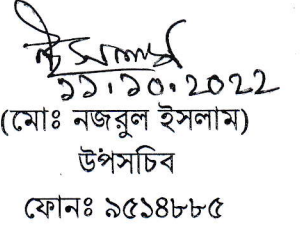 ১১.১০.2022
(মোঃ নজরুল ইসলাম)
উপসচিব
ফোনঃ ৯৫১৪৮৮৫